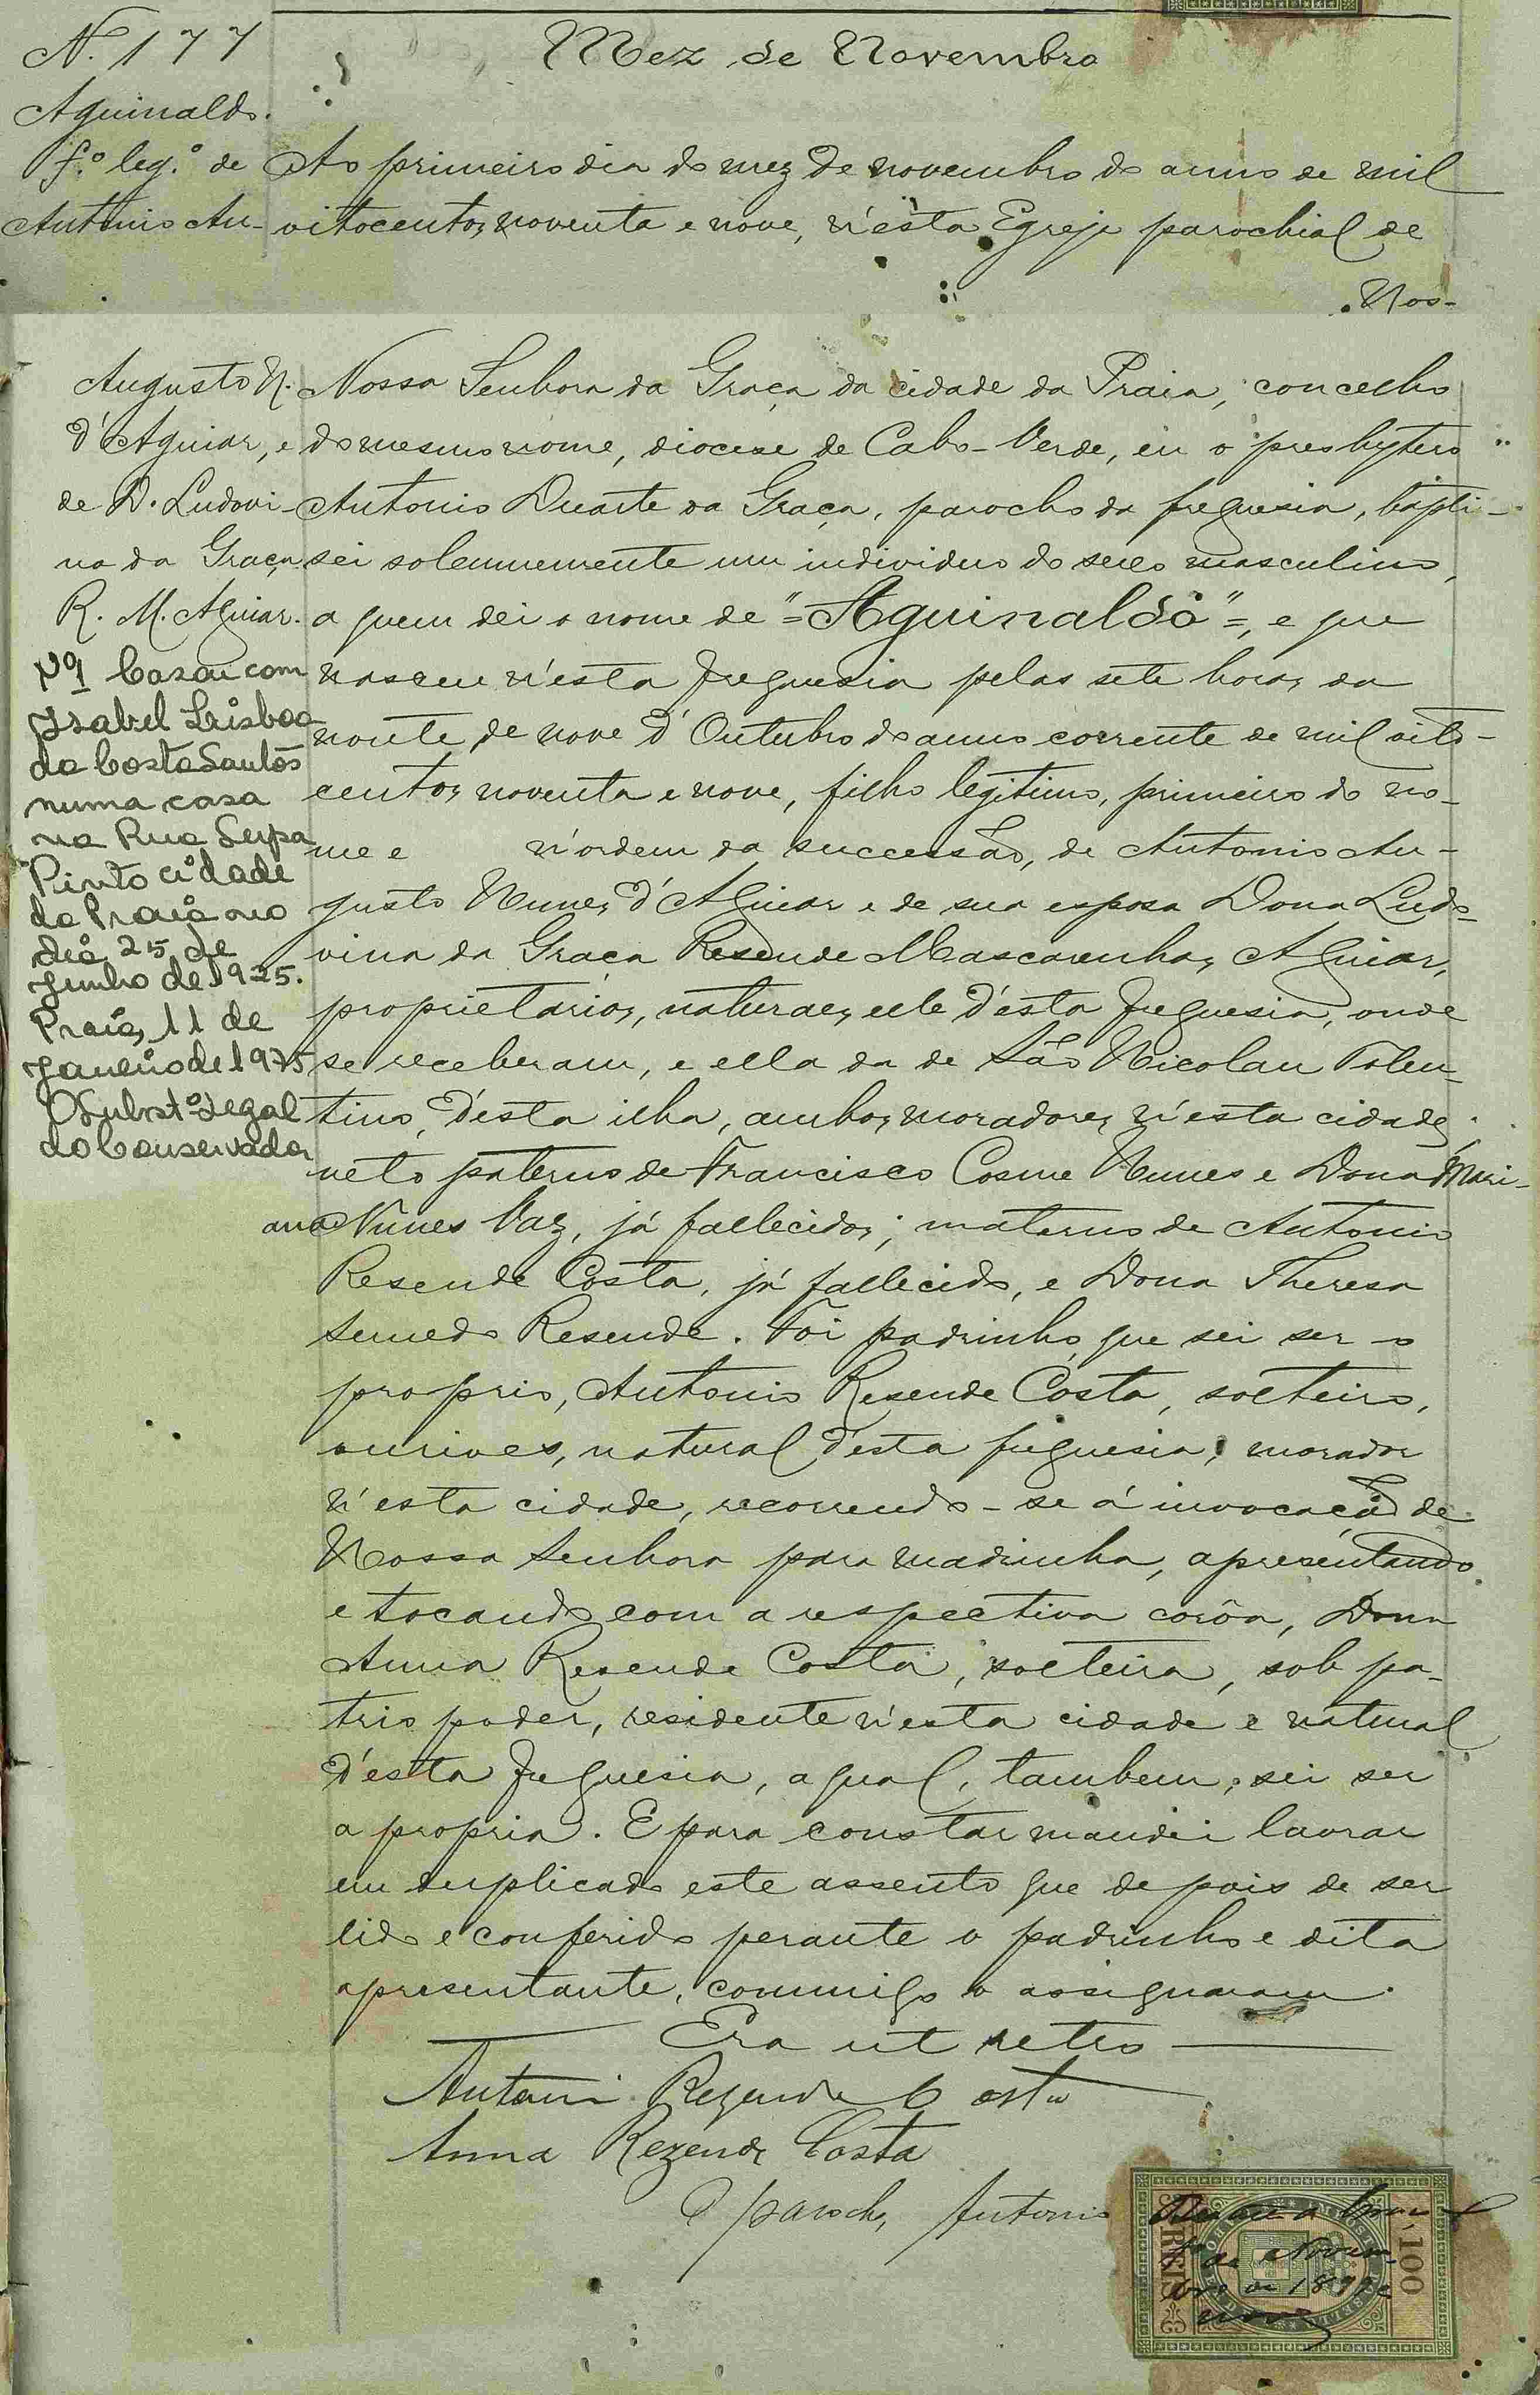 N. 177
Mez de Novembro
Aguinaldo.
f.º leg.º de
Antonio Au-
Ao primeiro dia do mez de novembro do anno de mil
oitocentos noventa e nove, n'esta Egreja parochial de
Nos-
Augusto N.
d'Aguiar, e
de D. Ludovi-
na da Graça
R. M. Aguiar.
Nº1 Casou com
Isabel Lisboa
da Costa Santos
numa casa
na Rua Serpa
Pinto cidade
da Praia no
dia 25 de
Junho de 1925.
Praia, 11 de
Janeiro de 1975
O Substº Legal
do Conservador
Nossa Senhora da Graça da cidade da Praia, concelho
do mesmo nome, diocese de Cabo-Verde, eu o presbytero
Antonio Duarte da Graça, parocho da freguesia, bapti-
sei solemnemente um individuo do sexo masculino,
a quem dei o nome de "=Aguinaldo"=, e que
nasceu n'esta freguesia pelas sete horas da
noute de nove d'Outubro do anno corrente de mil oito-
centos noventa e nove, filho legitimo, primeiro do no-
me e n'ordem da successão, de Antonio Au-
gusto Nunes d'Aguiar e de sua esposa Dona Ludo-
vina da Graça Resende Mascarenhas Aguiar,
proprietarios, naturaes, elle d'esta freguesia, onde
se receberam, e ella da de São Nicolau Tolen-
tino, d'esta ilha, ambos moradores n'esta cidade,
neto paterno de Francisco Cosme Nunes e Dona Mari-
ana Nunes Vaz, já fallecidos; materno de Antonio
Resende Costa, já fallecido, e Dona Theresa
Semedo Resende. Foi padrinho, que sei ser o
proprio, Antonio Resende Costa, solteiro,
ourives, natural d'esta freguesia, morador
n'esta cidade, recorrendo-se á invocação de
Nossa Senhora para madrinha, apresentando
e tocando com a respectiva corôa, Dona
Anna Resende Costa, solteira, sob pa-
trio poder, residente n'esta cidade e natural
d'esta freguesia, a qual, tambem, sei ser
a propria. E para constar mandei lavrar
em duplicado este assento que depois de ser
lido e conferido perante o padrinho e dita
apresentante, commigo o assignaram.
Era ut retro
Antoni Rezende Costa
Anna Rezende Costa
O parocho, Antonio Duarte da Graça
1º de Novem-
bro de 1899e
nove
100
REIS